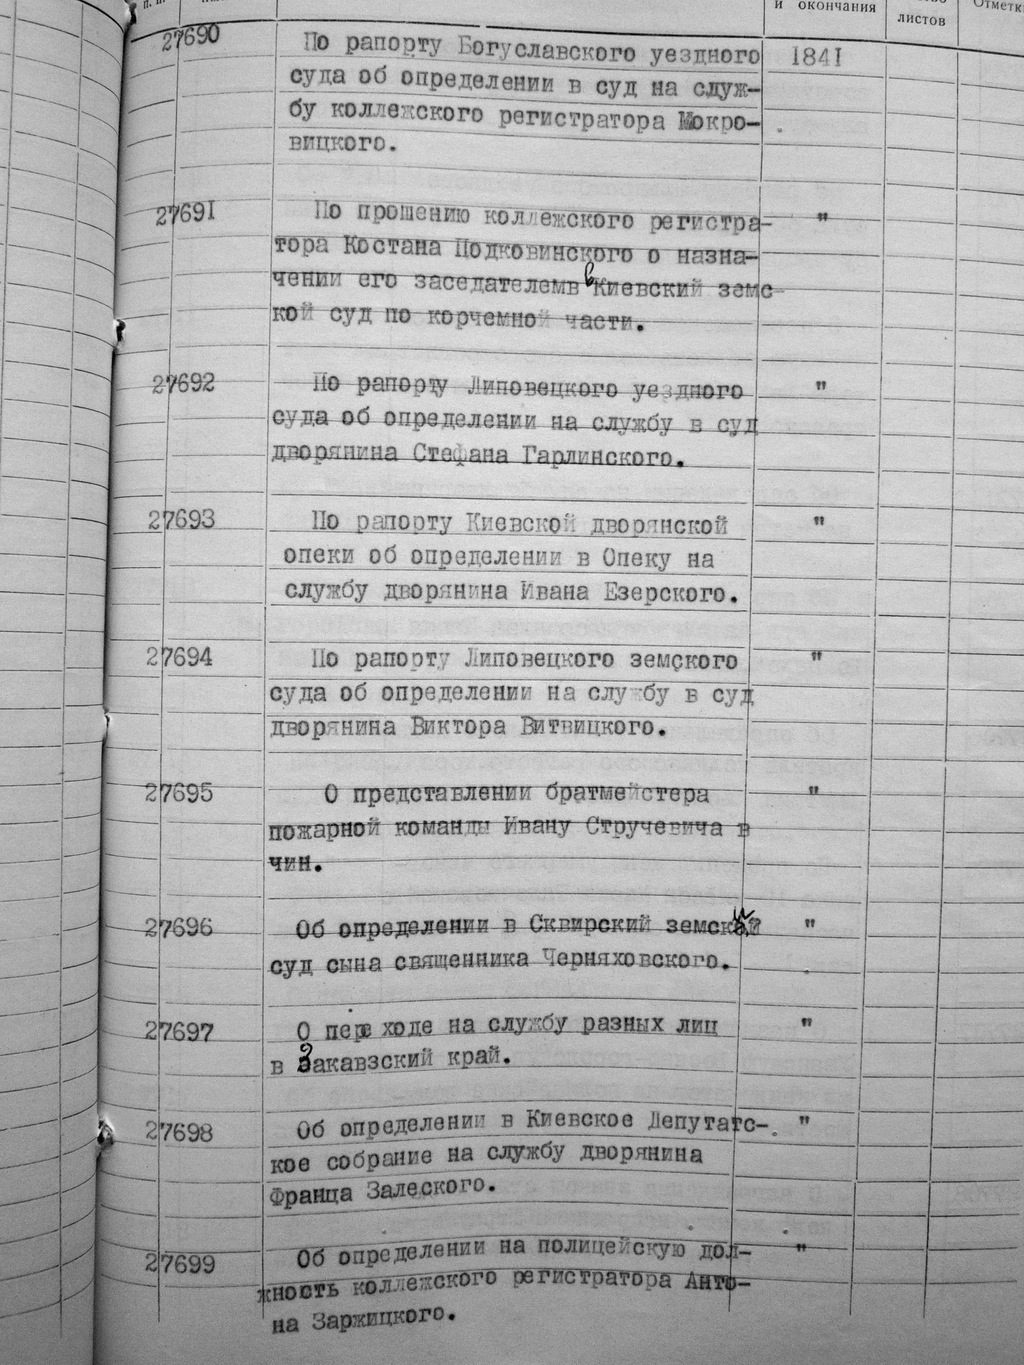 и окончания
листов
Отметк
27690 По рапорту Богуславского уездного 1841
суда об определении в суд на служ-
бу коллежского регистратора Мокро-
вицкого.
27691 По прошению коллежского регистра- "
тора Костана Подковинского о назна-
чении его заседателемв в Киевский земс-
кой суд по корчемной части.
27692 По рапорту Липовецкого уездного "
суда об определении на службу в суд
дворянина Стефана Гарлинского.
27693 По рапорту Киевской дворянской "
опеки об определении в Опеку на
службу дворянина Ивана Езерского.
27694 По рапорту Липовецкого земского "
суда об определении на службу в суд
дворянина Виктора Витвицкого.
27695 О представлении братмейстера "
пожарной команды Ивану Стручевича в
чин.
27696 Об определении в Сквирский земский "
суд сына священника Черняховского.
27697 О пере ходе на службу разных лиц "
в Закавзский край.
27698 Об определении в Киевское Депутатс- "
кое собрание на службу дворянина
Франца Залеского.
27699 Об определении на полицейскую дол- "
жность коллежского регистратора Анто-
на Заржицкого.